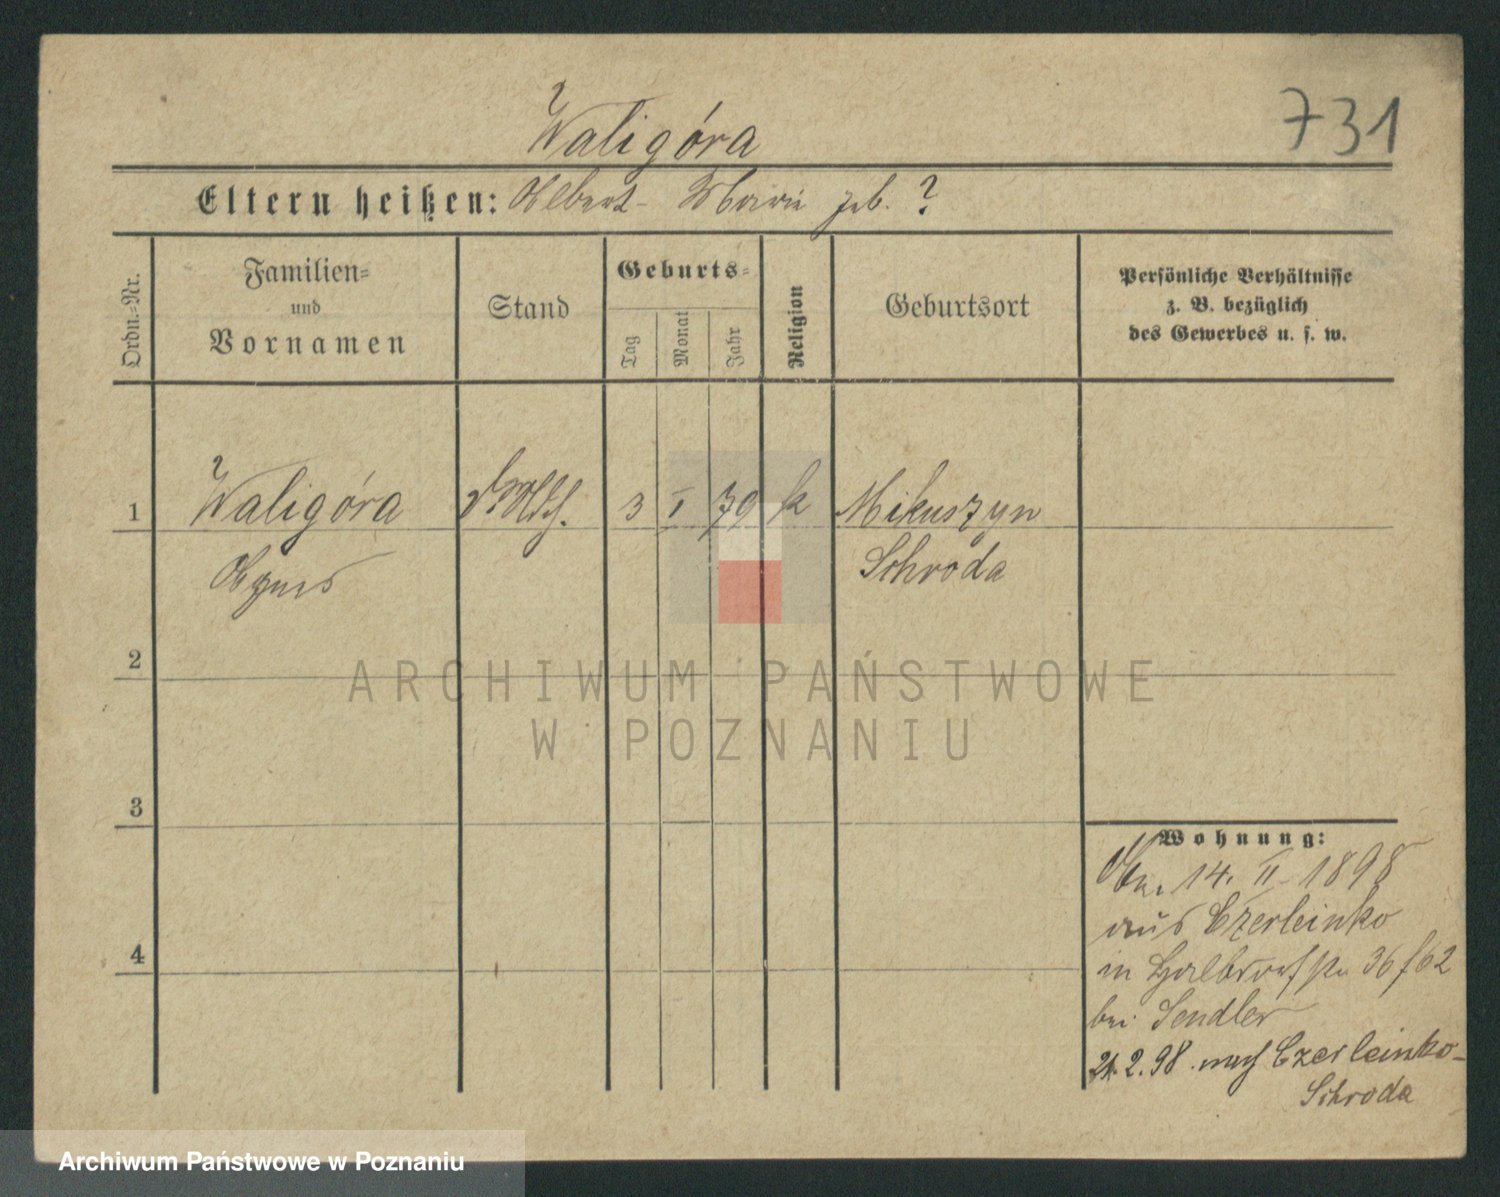 731
Waligóra
Eltern heißen: Albert - Marie geb. ?
Ordn.=Nr.
Familien=
und
Vornamen
Stand
Geburts=
Tag
Monat
Jahr
Religion
Geburtsort
Persönliche Verhältnisse
z. B. bezüglich
des Gewerbes u. s. w.
1
Waligóra
3 I 79 k
Mikuszyn
Agnes
Schroda
2
ARCHIWUM PAŃSTWOWE
W POZNANIU
3
Wohnung:
14. II 1898
aus Czerleinko
in Halbdorfstr 36
bei Sendler
2. 98. nach Czerleinko-
Schroda
4
Archiwum Państwowe w Poznaniu